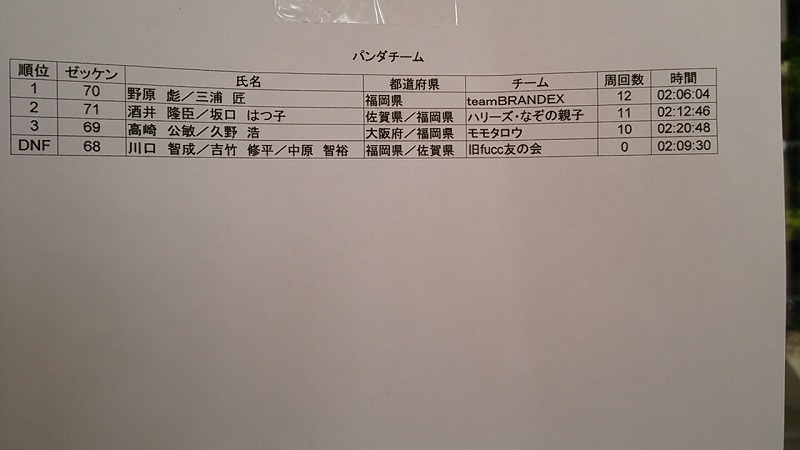 パンダチーム
順位 ゼッケン 氏名 都道府県 チーム 周回数 時間
1 70 野原 彪／三浦 匠 福岡県 teamBRANDEX 12 02:06:04
2 71 酒井 隆臣／坂口 はつ子 佐賀県／福岡県 ハリーズ・なぞの親子 11 02:12:46
3 69 高崎 公敏／久野 浩 大阪府／福岡県 モモタロウ 10 02:20:48
DNF 68 川口 智成／吉竹 修平／中原 智裕 福岡県／佐賀県 旧fucc友の会 0 02:09:30